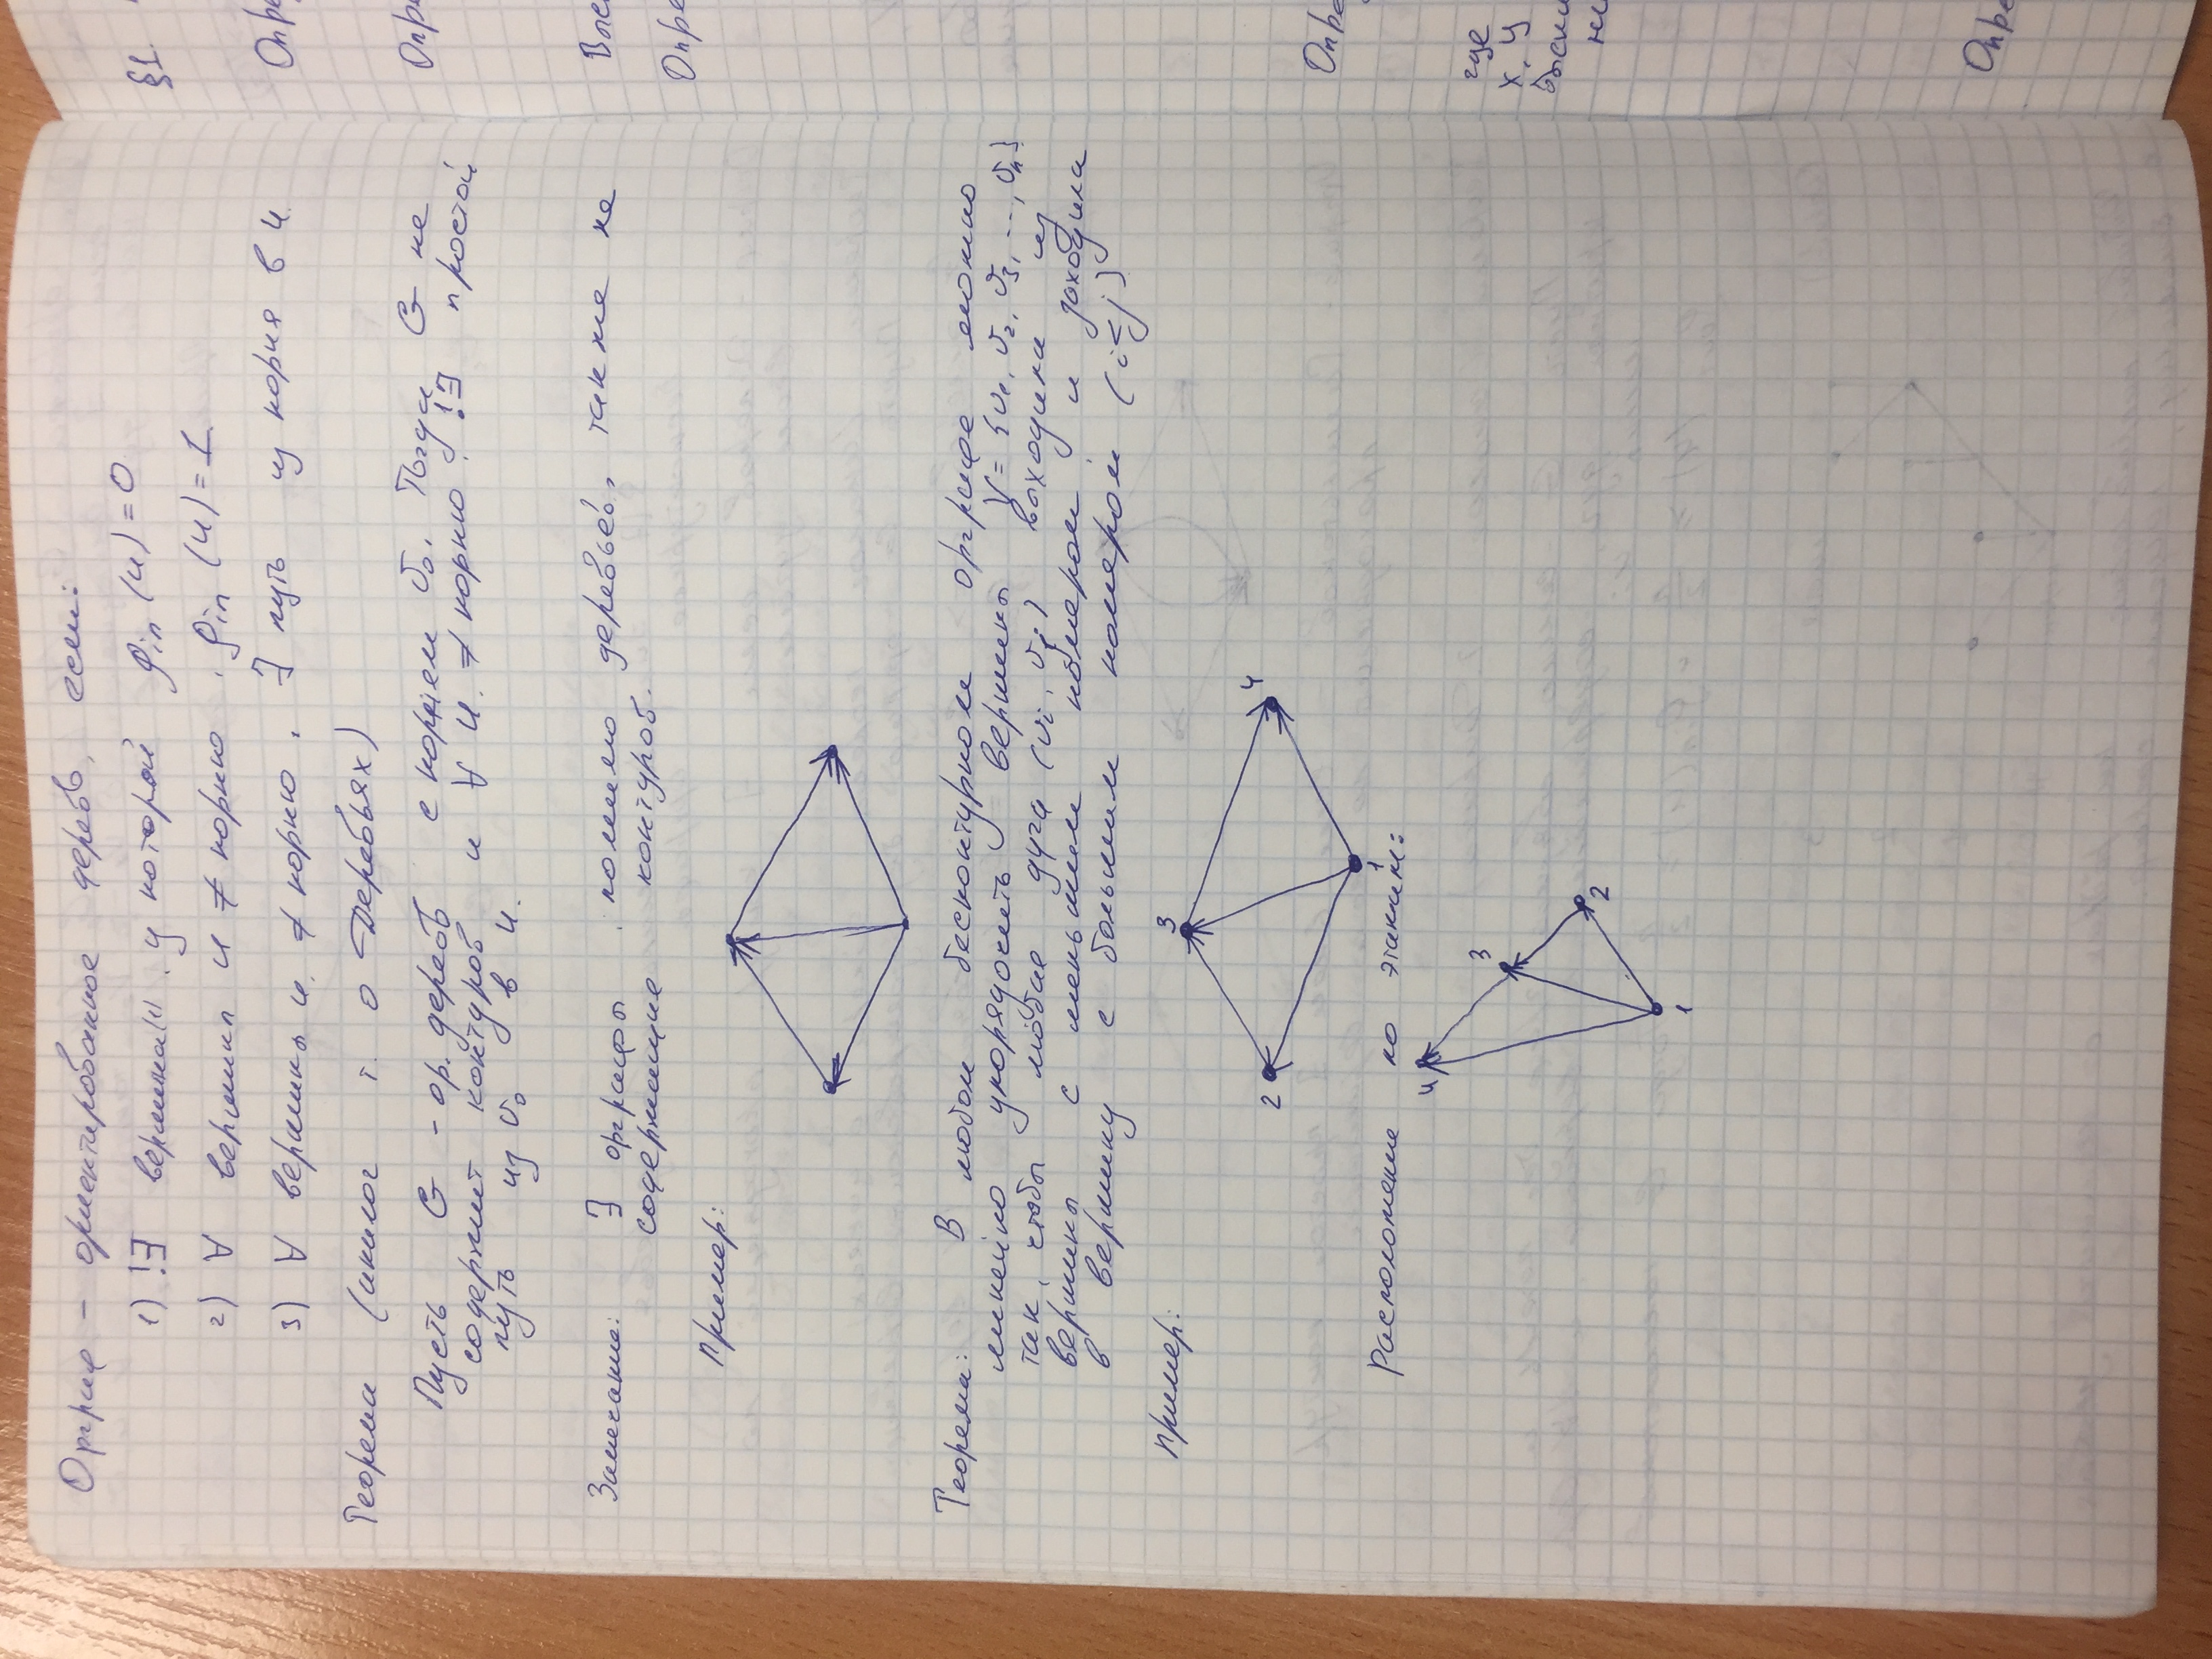 Орграф – ориентированное дерево, если:
1) !∃ вершина(u), у которой ρin (u) = 0
2) ∀ вершин u ≠ корню, ρin (u) = 1.
3) ∀ вершины u, ≠ корню, ∃ путь из корня в u.
Теорема (аналог т. о деревьях)
Пусть G – ор. дерево с корнем v₀. Тогда G не
содержит контуров и ∀ u, ≠ корню, !∃ простой
путь из v₀ в u.
Замечание: ∃ орграфы, помимо деревьев, также не
содержащие контуров.
пример:
Теорема: В любом бесконтурном орграфе можно
линейно упорядочить вершины V = {v₁, v₂, v₃, ..., vₙ}
так, чтобы любая дуга (vᵢ, vⱼ) выходила из
вершины с меньшим номером и заходила
в вершину с большим номером (i<j)
пример:
3
2
4
1
расположение по этажам:
4
3
2
1
§1.
где
x, y